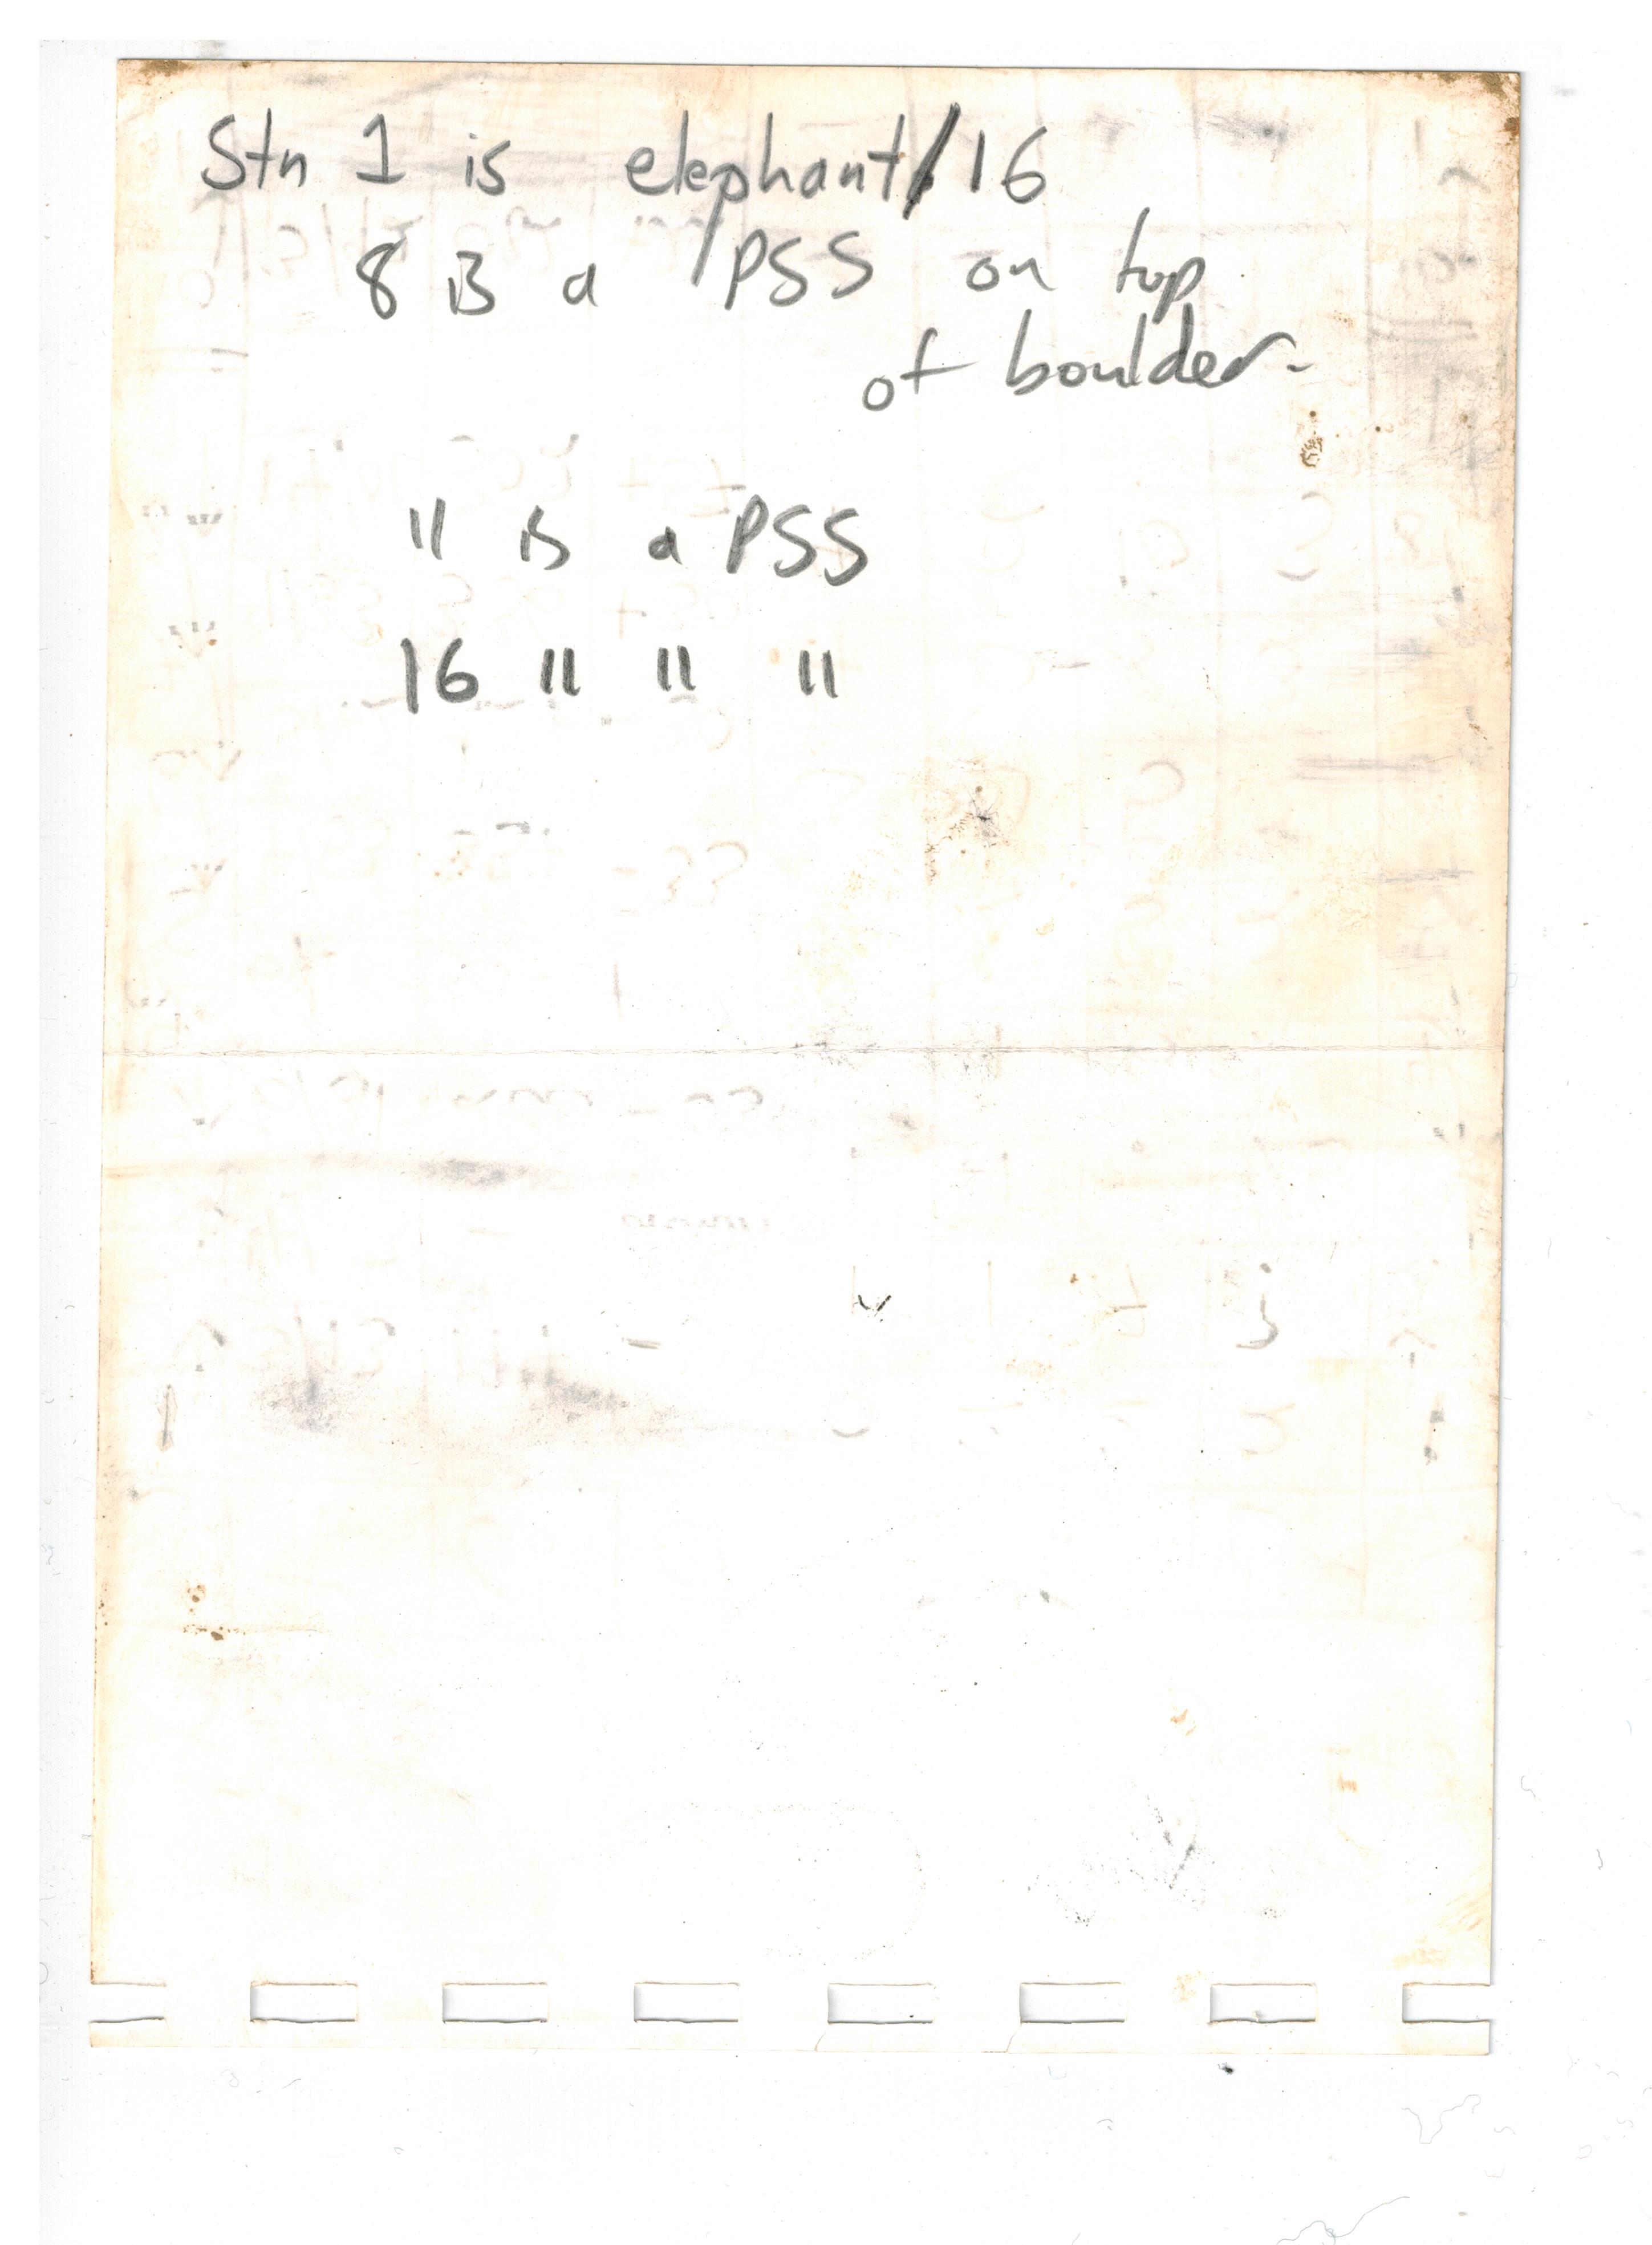 Stn 1 is elephant/16
8 is a PSS on top
of boulder.
11 is a PSS
16 " " "